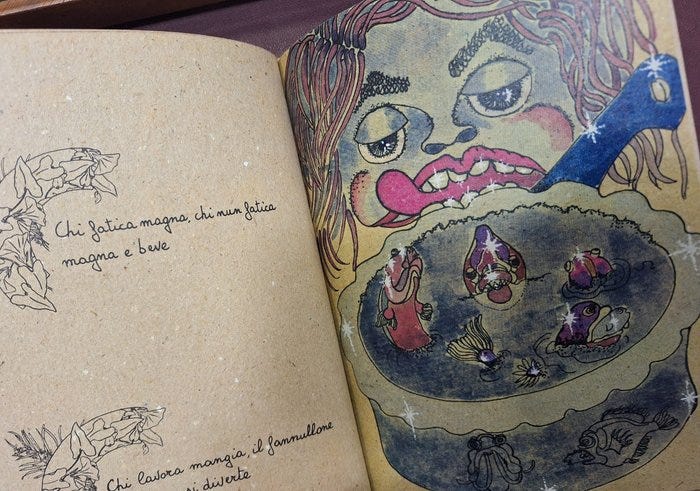 Chi fatica magna, chi nun fatica
magna e beve
Chi lavora mangia, il fannullone
si diverte